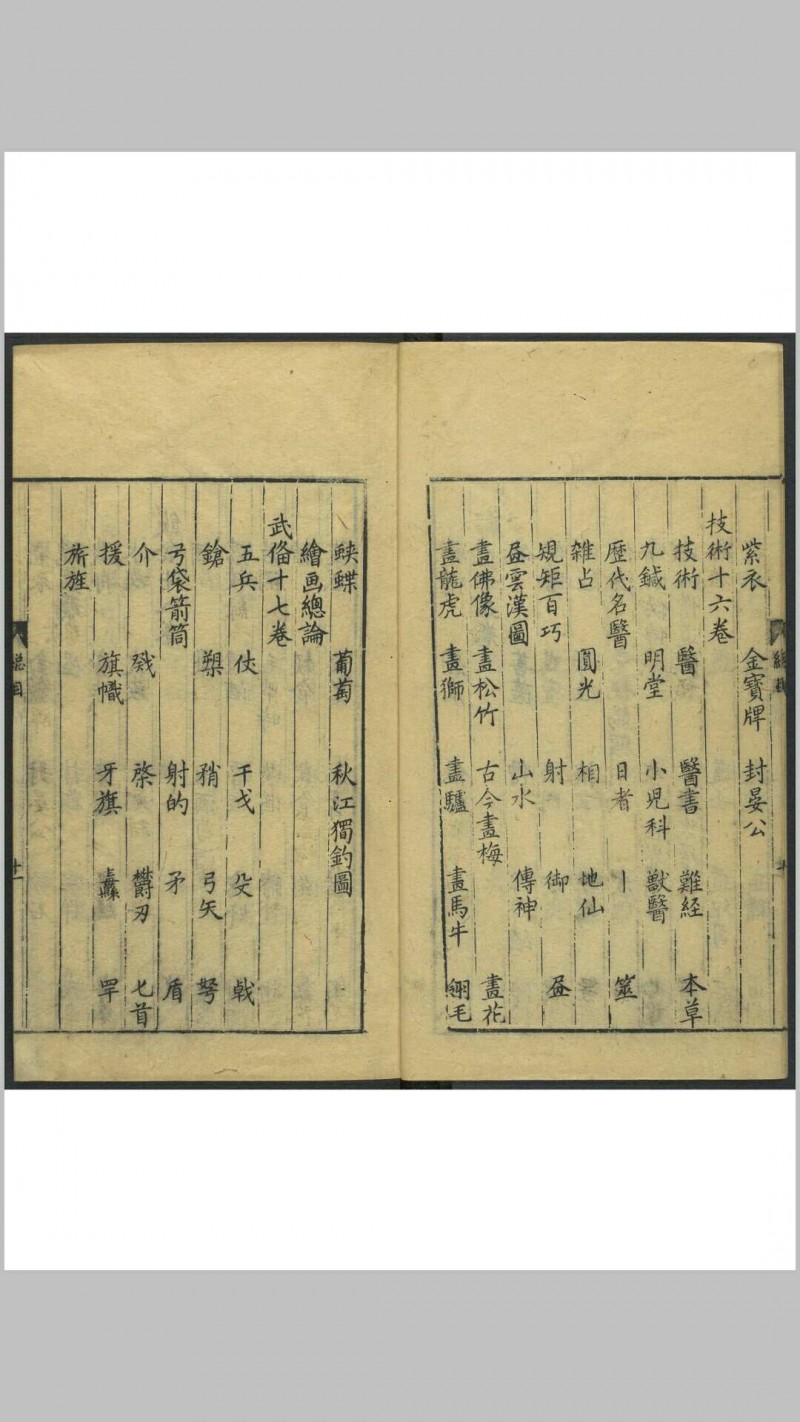 紫衣 金寶牌 封晏公
技術十六卷
技術 醫 醫書 難経 本草
九鍼 明堂 小児科 獸醫
歴代名醫 日者 卜 筮
雑占 圓光 相 地仙
規矩百巧 射 御 昼
昼雲漢圖 山水 傳神
畫佛像 畫松竹 古今畫梅 畫花
畫龍虎 畫獅 畫驢 畫馬牛 翎毛
蛺蝶 葡萄 秋江獨釣圖
繪画總論
武俻十七卷
五兵 伏 干戈 殳 戟
鎗 槊 矟 弓矢 弩
弓袋箭筒 射的 矛 盾
介 戣 棨 欝刃 匕首
援 旗幟 牙旗 纛 罕
旂旌
總目
十一